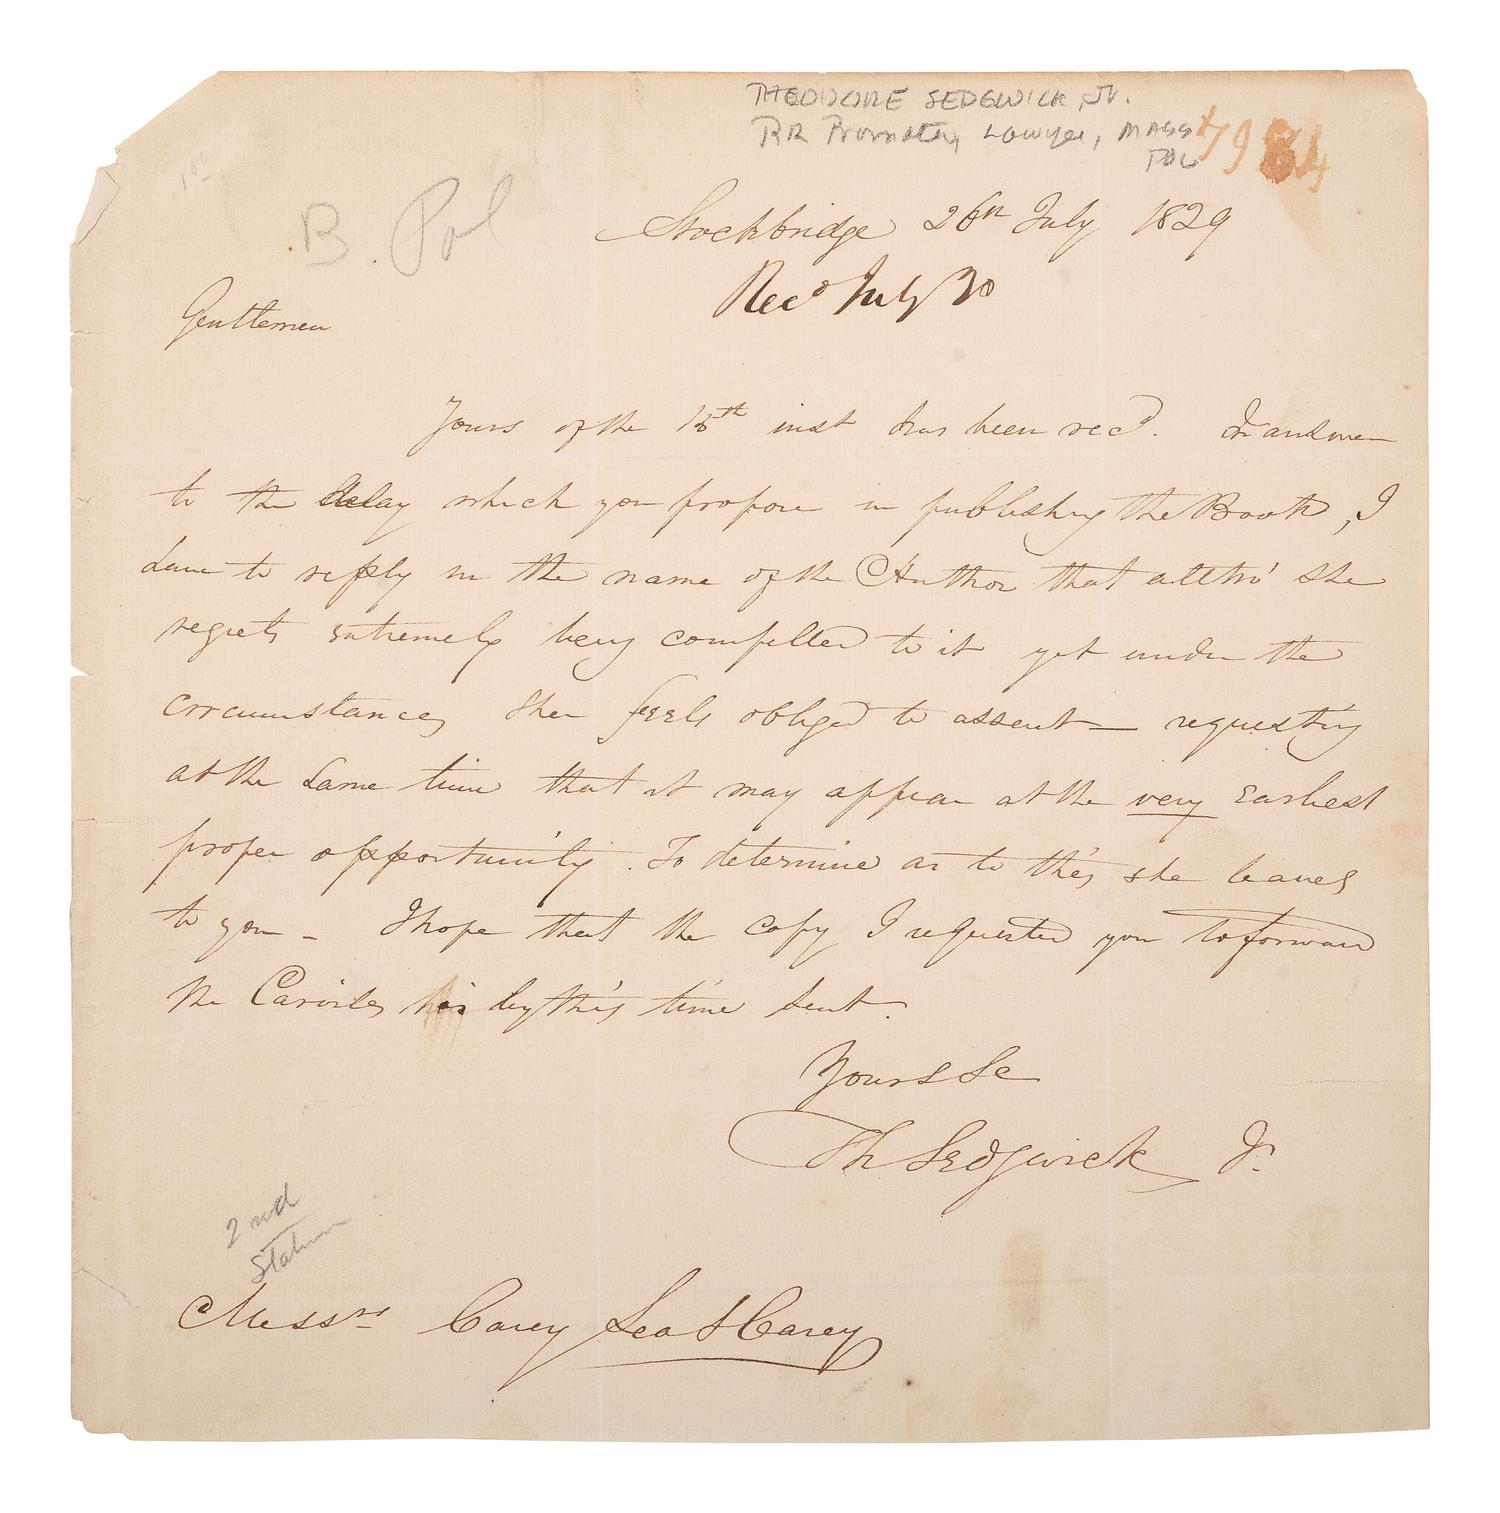 THEODORE SEDGWICK, Jr.
RR Promoter, Lawyer, MASS
POL
B. Pol
Stockbridge 26th July 1829
Recd July 30
Gentlemen
Yours of the 15th inst has been recd. In answer
to the delay which you propose in publishing the Book, I
have to reply in the name of the Author that altho' she
regrets extremely being compelled to it yet under the
circumstances she feels obliged to assent — requesting
at the same time that it may appear at the very earliest
proper opportunity. To determine as to this she leaves
to you – I hope that the copy I requested you to forward
the Carvilles has by this time sent.
Yours &c
Th Sedgwick Jr
2nd
Messrs Carey Lea & Carey